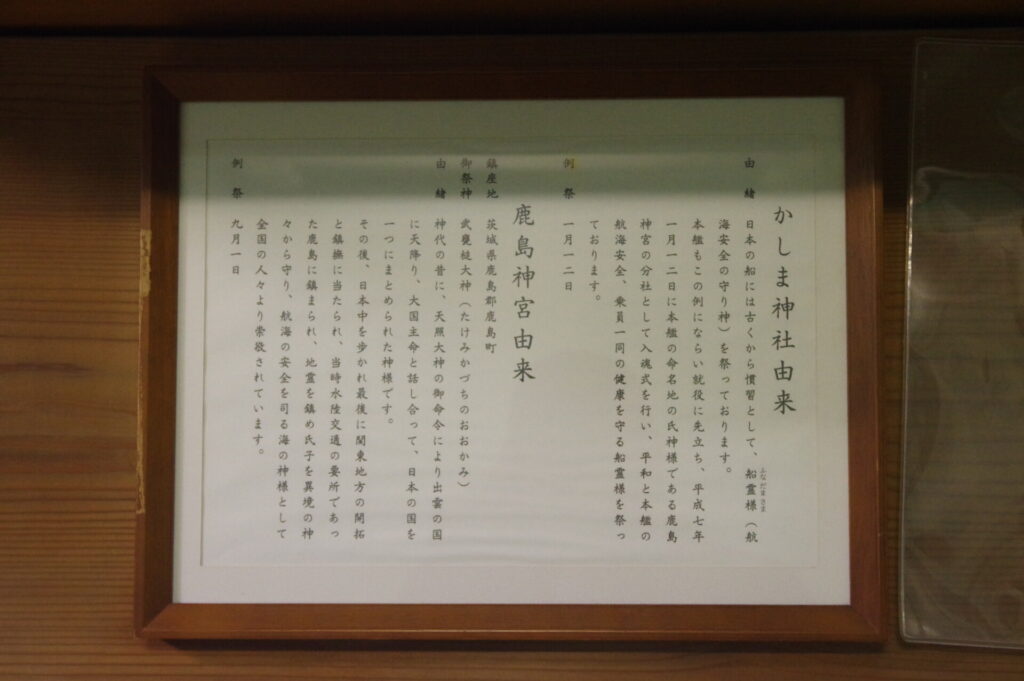 かしま神社由来
由緒 日本の船には古くから慣習として、船霊様（航
ふなだまさま
海安全の守り神）を祭っております。
本艦もこの例にならい就役に先立ち、平成七年
一月一二日に本艦の命名地の氏神様である鹿島
神宮の分社として入魂式を行い、平和と本艦の
航海安全、乗員一同の健康を守る船霊様を祭っ
ております。
例祭 一月一二日
鹿島神宮由来
鎮座地 茨城県鹿島郡鹿島町
御祭神 武甕槌大神（たけみかづちのおおかみ）
由緒 神代の昔に、天照大神の御命令により出雲の国
に天降り、大国主命と話し合って、日本の国を
一つにまとめられた神様です。
その後、日本中を歩かれ最後に関東地方の開拓
と鎮撫に当たられ、当時水陸交通の要所であっ
た鹿島に鎮まられ、地霊を鎮め氏子を異境の神
々から守り、航海の安全を司る海の神様として
全国の人々より崇敬されています。
例祭 九月一日